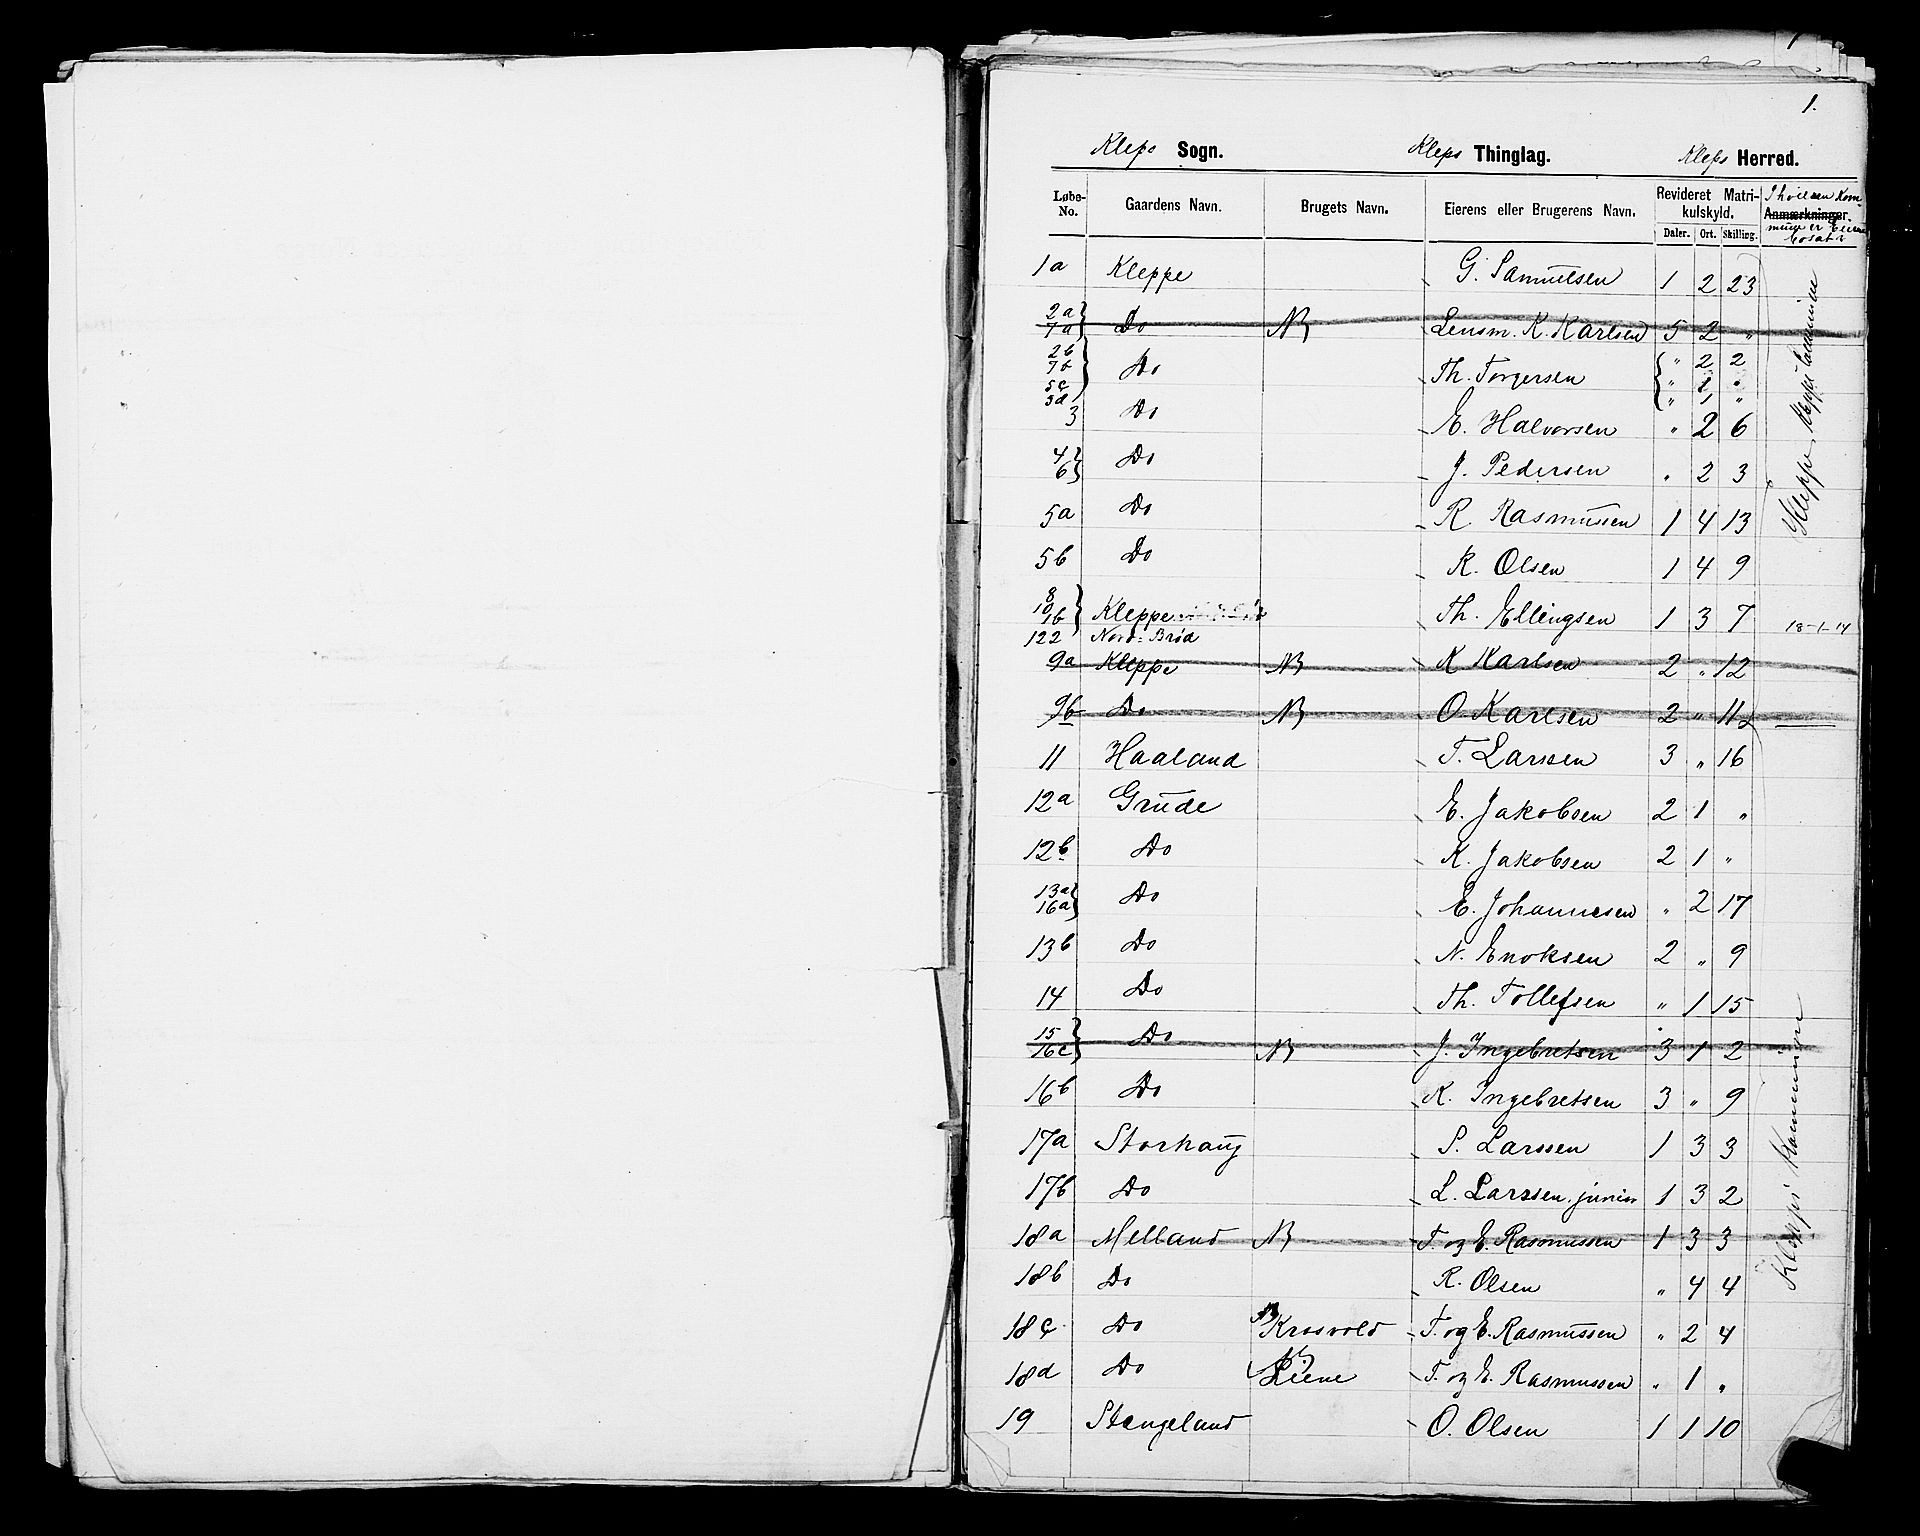 1
1.
Klepp Sogn. Klepp Thinglag. Klepp Herred.
Løbe-No. Gaardens Navn. Brugets Navn. Eierens eller Brugerens Navn. Revideret Matrikulskyld. Daler. Ort. Skilling. Anmærkninger. I hvilken Kommune er Eieren bosat?
1a Kleppe G. Samuelsen 1 2 23
2a 7a } Do NB Lensm. K. Karlsen 5 2 "
2b 7b 5c 3d } Do Th. Torgersen { " 2 2 " 1 " " 1 "
3 Do E. Halvorsen " 2 6
4 6 } Do J. Pedersen " 2 3
5a Do R. Rasmussen 1 4 13
5b Do K. Olsen 1 4 9
Kleppe, Klepps Kommune
8 10 1b } Kleppe Th. Ellingsen 1 3 7
122 Nord-Brød 18-1-14
9a Kleppe NB K Karlsen 2 " 12
9b Do NB O. Karlsen 2 " 11
11 Haaland T. Larsen 3 " 16
12a Grude E. Jakobsen 2 1 "
12b Do K. Jakobsen 2 1 "
13a 16a } Do E. Johannesen " 2 17
13b Do N. Enoksen 2 " 9
14 Do Th. Tollefsen " 1 15
15 16c } Do NB J. Ingebretsen 3 1 2
16b Do K. Ingebretsen 3 " 9
17a Storhaug S. Larssen 1 3 3
17b Do L. Larssen, junior 1 3 2
18a Melland NB T. og E. Rasmussen 1 3 3
18b Do R. Olsen " 4 4
Klepps Kommune
18c Do NB Krosvold T. og E. Rasmussen " 2 4
18d Do NB Liene T. og E. Rasmussen " 1 "
19 Stangeland O. Olsen 1 1 10